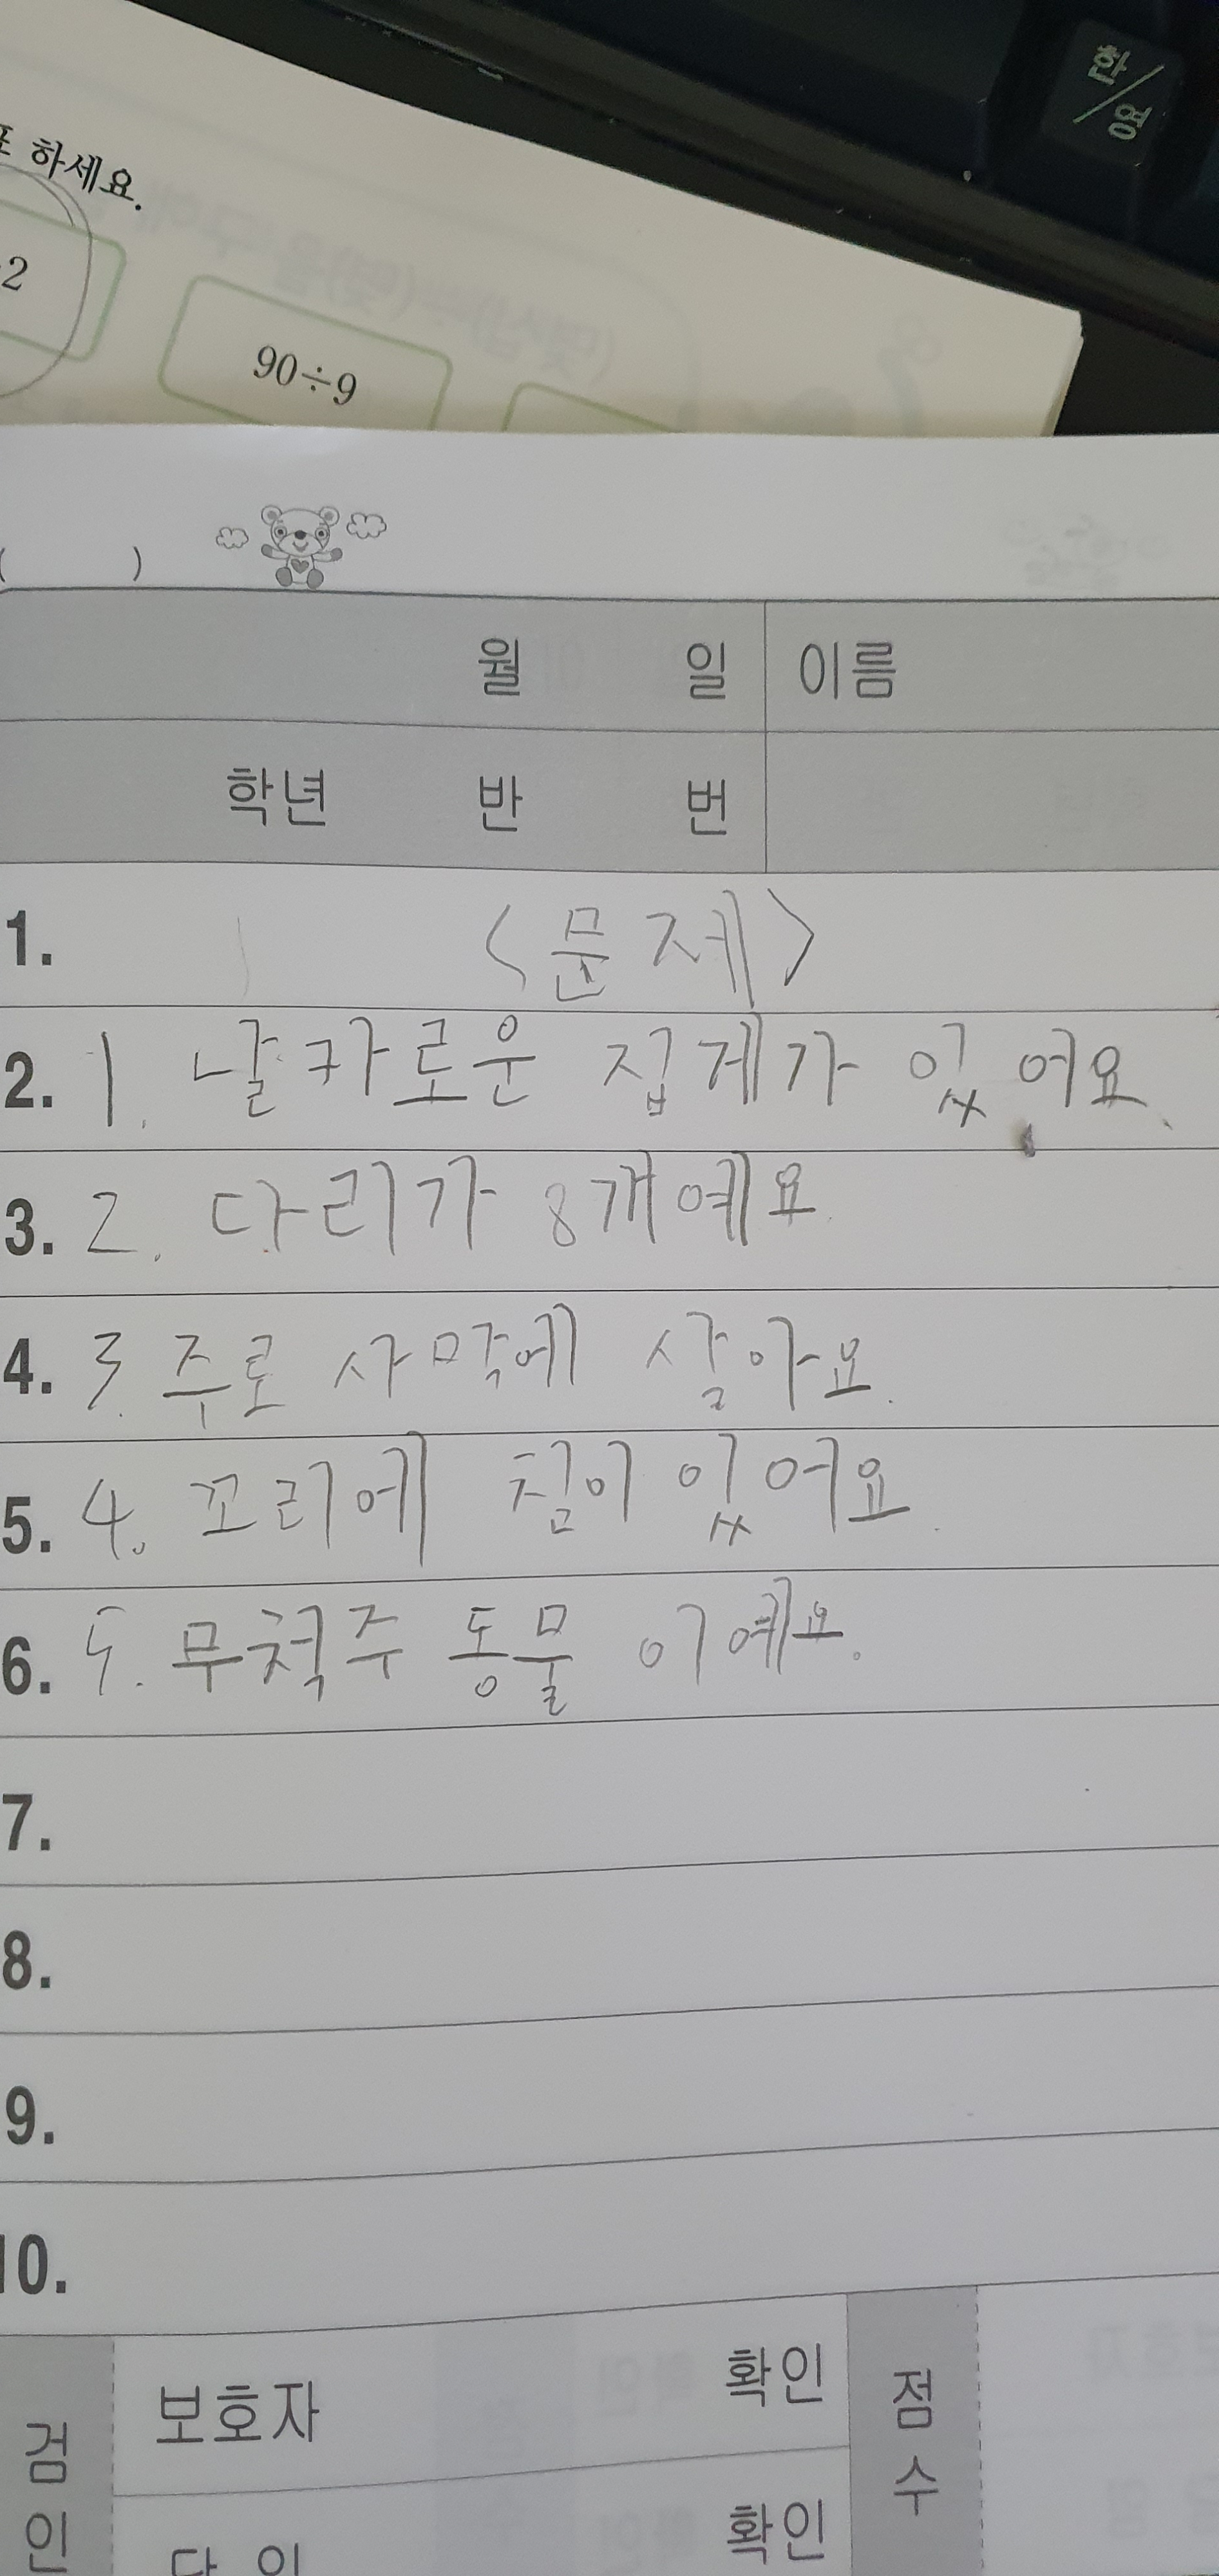 한/영
표 하세요.
2
90÷9
( )
월 일 이름
학년 반 번
1. <문제>
2. 1. 날카로운 집게가 있어요.
3. 2. 다리가 8개예요.
4. 3. 주로 사막에 살아요.
5. 4. 꼬리에 침이 있어요.
6. 5. 무척주 동물 이예요.
7.
8.
9.
10.
검인
보호자 확인
점수
확인